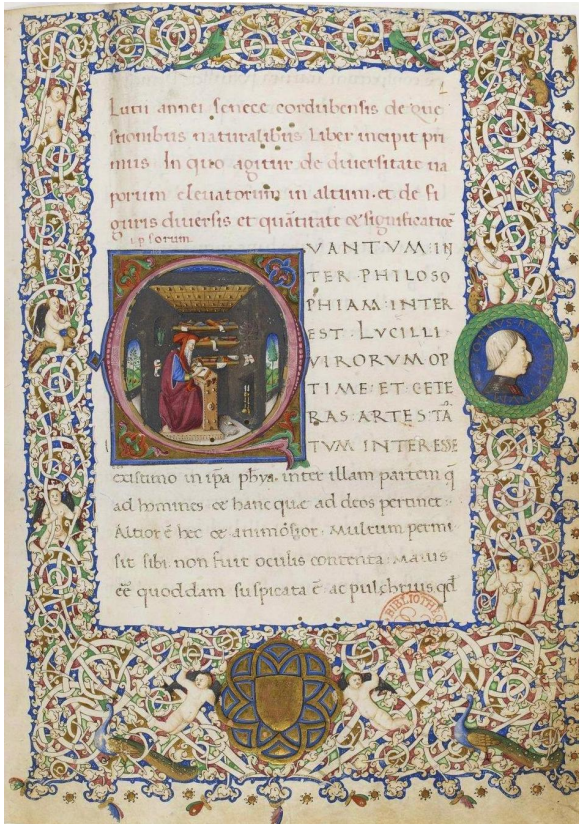 Lutii annei senece cordubensis de que
stionibus naturalibus Liber incipit pri
mus In quo agitur de diuersitate ua
porum eleuatorum in altum. et de fi
guris diuersis et quātitate & significatiōe
ipsorum
VANTVM IN
TER PHILOSO
PHIAM INTER
EST LVCILLI
VIRORVM OP
TIME ET CETE
RAS ARTES TĀ
TVM INTERESSE
existimo in ip̄a phya. inter illam partem q̄
ad homines et hanc que ad deos pertinet
Altior ē hec et animosior. Multum permi
sit sibi. non fuit oculis contenta. Maius
eē quoddam suspicata ē ac pulchrius qd
BIBLIOTH